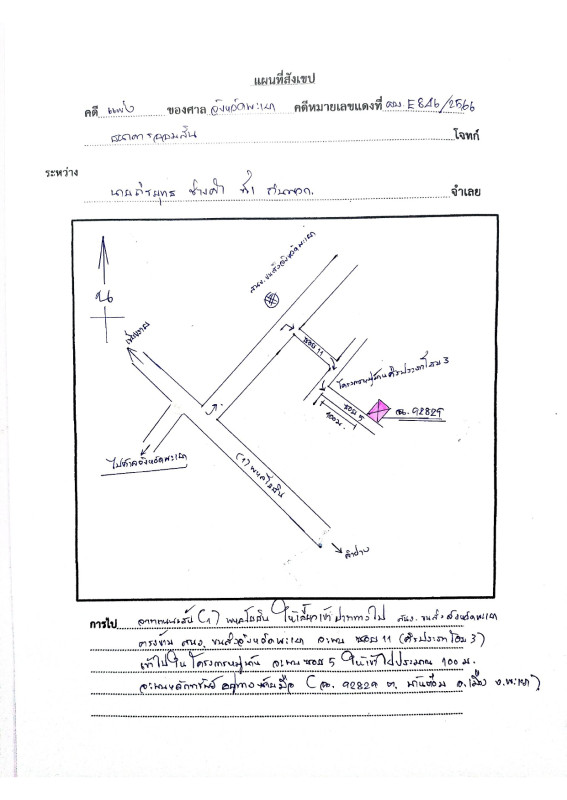 แผนที่สังเขป
คดี แพ่ง ของศาล จังหวัดพะเยา คดีหมายเลขแดงที่ ผบ. E 846/2566
ธนาคารออมสิน โจทก์
ระหว่าง
นาย ที่ 1 กับพวก. จำเลย
สนง. ขนส่งจังหวัดพะเยา
น
เชียงราย
ซอย 11
โครงการหมู่บ้านศิรประภาโฮม 3
ซอย 5
100 ม.
ฉน. 92829
ไปศาลจังหวัดพะเยา
(1) พหลโยธิน
ลำปาง
การไป จากถนนสาย (1) พหลโยธิน ให้เลี้ยวเข้า ทางไป สนง. ขนส่งจังหวัดพะเยา
ตรงข้าม สนง. ขนส่งจังหวัดพะเยา จะพบ ซอย 11 (ศิรประภาโฮม 3)
เข้าไปในโครงการหมู่บ้าน จะพบ ซอย 5 ให้เข้าไปประมาณ 100 ม.
จะพบหลักทรัพย์อยู่ทางซ้ายมือ (ฉน. 92829 ต. บ้านต๋อม อ. เมือง จ. พะเยา)